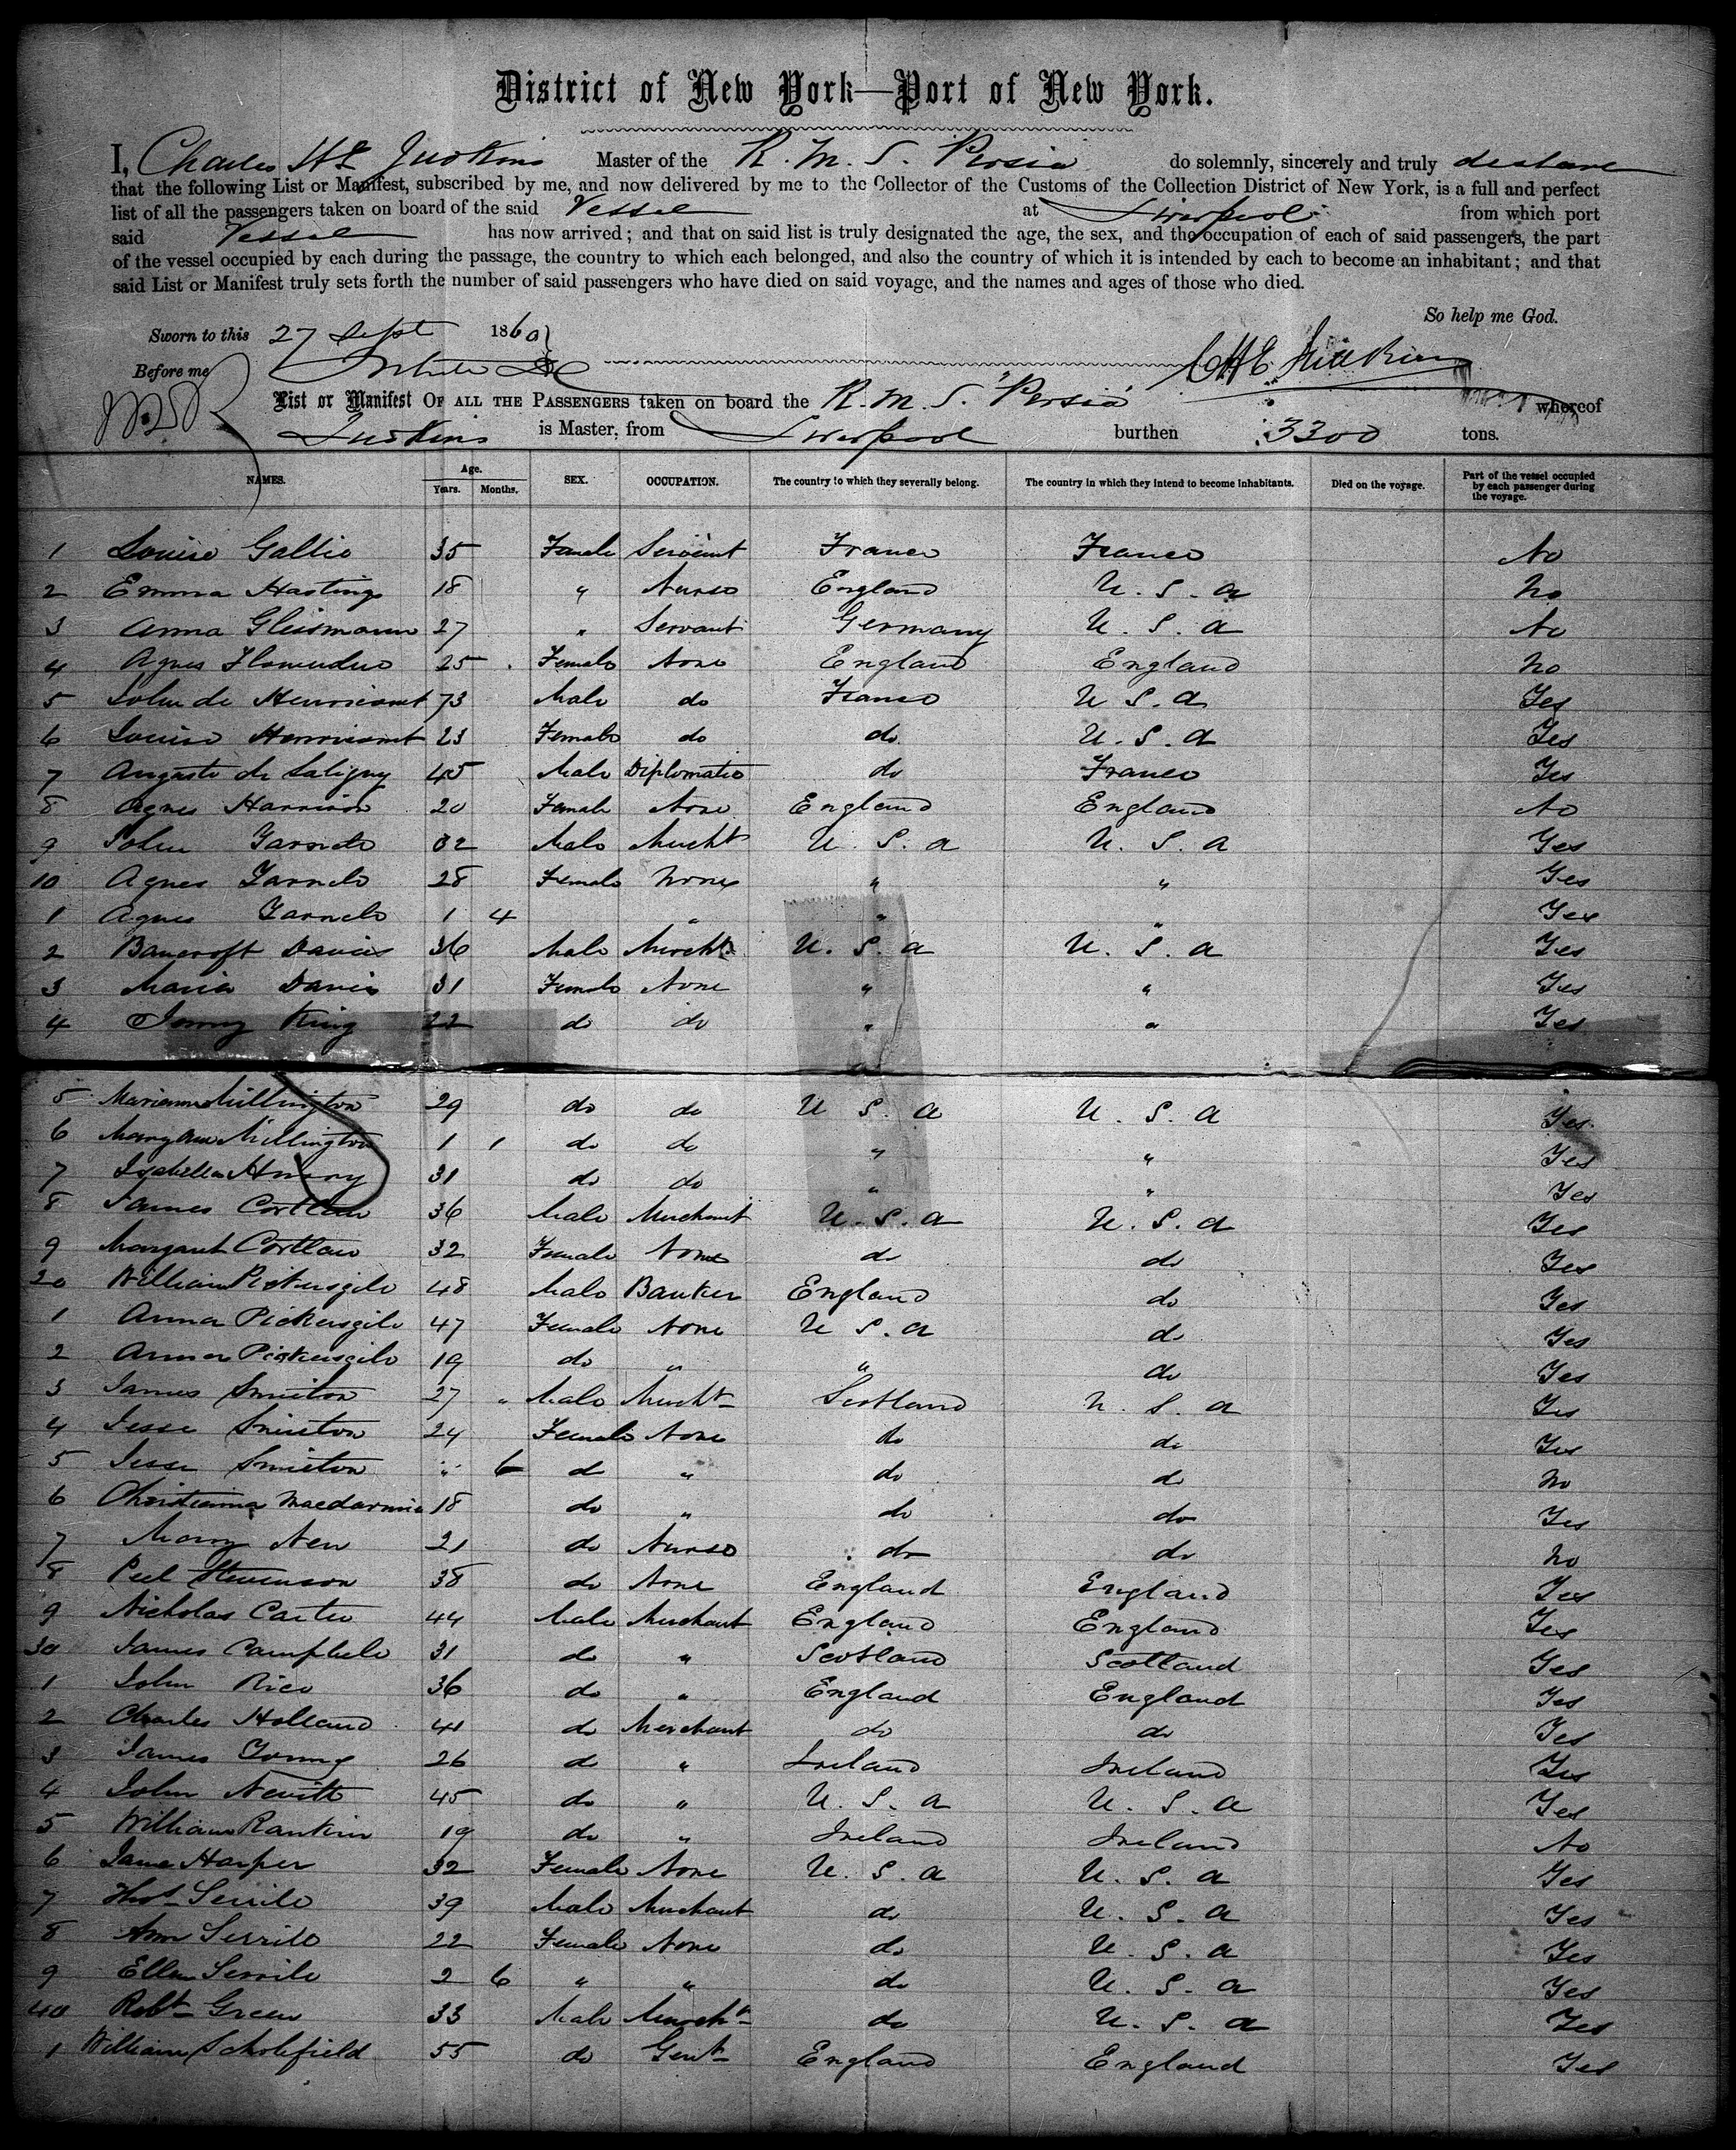 District of New York—Port of New York.
I, Charles H E Judkins Master of the R. M. S. Persia do solemnly, sincerely and truly declare
that the following List or Manifest, subscribed by me, and now delivered by me to the Collector of the Customs of the Collection District of New York, is a full and perfect
list of all the passengers taken on board of the said Vessel at Liverpool from which port
said Vessel has now arrived; and that on said list is truly designated the age, the sex, and the occupation of each of said passengers, the part
of the vessel occupied by each during the passage, the country to which each belonged, and also the country of which it is intended by each to become an inhabitant; and that
said List or Manifest truly sets forth the number of said passengers who have died on said voyage, and the names and ages of those who died.
So help me God.
Sworn to this 27 Sept 1860
Before me CHE Judkins
List or Manifest OF ALL THE PASSENGERS taken on board the R. M. S. "Persia" whereof
Judkins is Master, from Liverpool burthen 3300 tons.
NAMES. Age. Years. Months. SEX. OCCUPATION. The country to which they severally belong. The country in which they intend to become inhabitants. Died on the voyage. Part of the vessel occupied by each passenger during the voyage.
1 Louise Gallie 35 Female Servant France France No
2 Emma Hastings 18 " Nurse England U. S. a No
3 Anna Gleismann 27 " Servant Germany U. S. a No
4 Agnes 25 Female None England England No
5 John de 73 Male do France U S. a Yes
6 Louise 23 Female do do U. S. a Yes
7 Auguste de Saligny 45 Male Diplomatic do France Yes
8 Agnes Harrison 20 Female None England England No
9 John 32 Male Mercht U. S. a U. S. a Yes
10 Agnes 28 Female None " " Yes
1 Agnes 1 4 " " " Yes
2 Bancroft Davis 36 Male Mercht U. S. a U. S. a Yes
3 Maria Davis 31 Female None " " Yes
4 Jenny King 22 do do " " Yes
5 Marianne Millington 29 do do U S. a U. S. a Yes
6 Mary Ann Millington 1 1 do do " " Yes
7 Isabella 31 do do " " Yes
8 James Cortlan 36 Male Merchant U. S. a U. S. a Yes
9 Margaret Cortlan 32 Female None do do Yes
20 William Pickersgile 48 Male Banker England do Yes
1 Anna Pickersgile 47 Female None U S. a do Yes
2 Anna Pickersgile 19 do " " do Yes
3 James Smieton 27 " Male Mercht Scotland U. S. a Yes
4 Jesse Smieton 24 Female None do do Yes
5 Jesse Smieton " 6 do " do do No
6 Christianna 18 do " do do Yes
7 Mary New 21 do Nurse do do No
8 Peel Stevenson 38 do None England England Yes
9 Nicholas Carter 44 Male Merchant England England Yes
30 James Campbele 31 do " Scotland Scotland Yes
1 John Rice 36 do " England England Yes
2 Charles Holland 41 do Merchant do do Yes
3 James Young 26 do " Ireland Ireland Yes
4 John Nevitt 45 do " U. S. a U. S. a Yes
5 William Rankin 19 do " Ireland Ireland No
6 Jane Harper 32 Female None U. S. a U. S. a Yes
7 Thos Serrile 39 Male Merchant do U. S. a Yes
8 Ann Serrile 22 Female None do U. S. a Yes
9 Ellen Serrile 2 6 " " do U. S. a Yes
40 Robt Green 33 Male Mercht do U. S. a Yes
1 William Scholefield 55 do Gent England England Yes